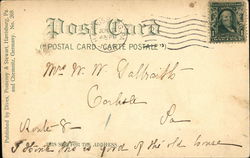 Post Card
"POSTAL CARD - CARTE POSTALE"
Mrs W. W. Galbraith
Carlisle
Pa
Route 8
THIS SIDE FOR THE ADDRESS
I think this is good of the old house
Published by Dives, Pomeroy & Stewart, Harrisburg, Pa
and Chemnitz, Germany. No.